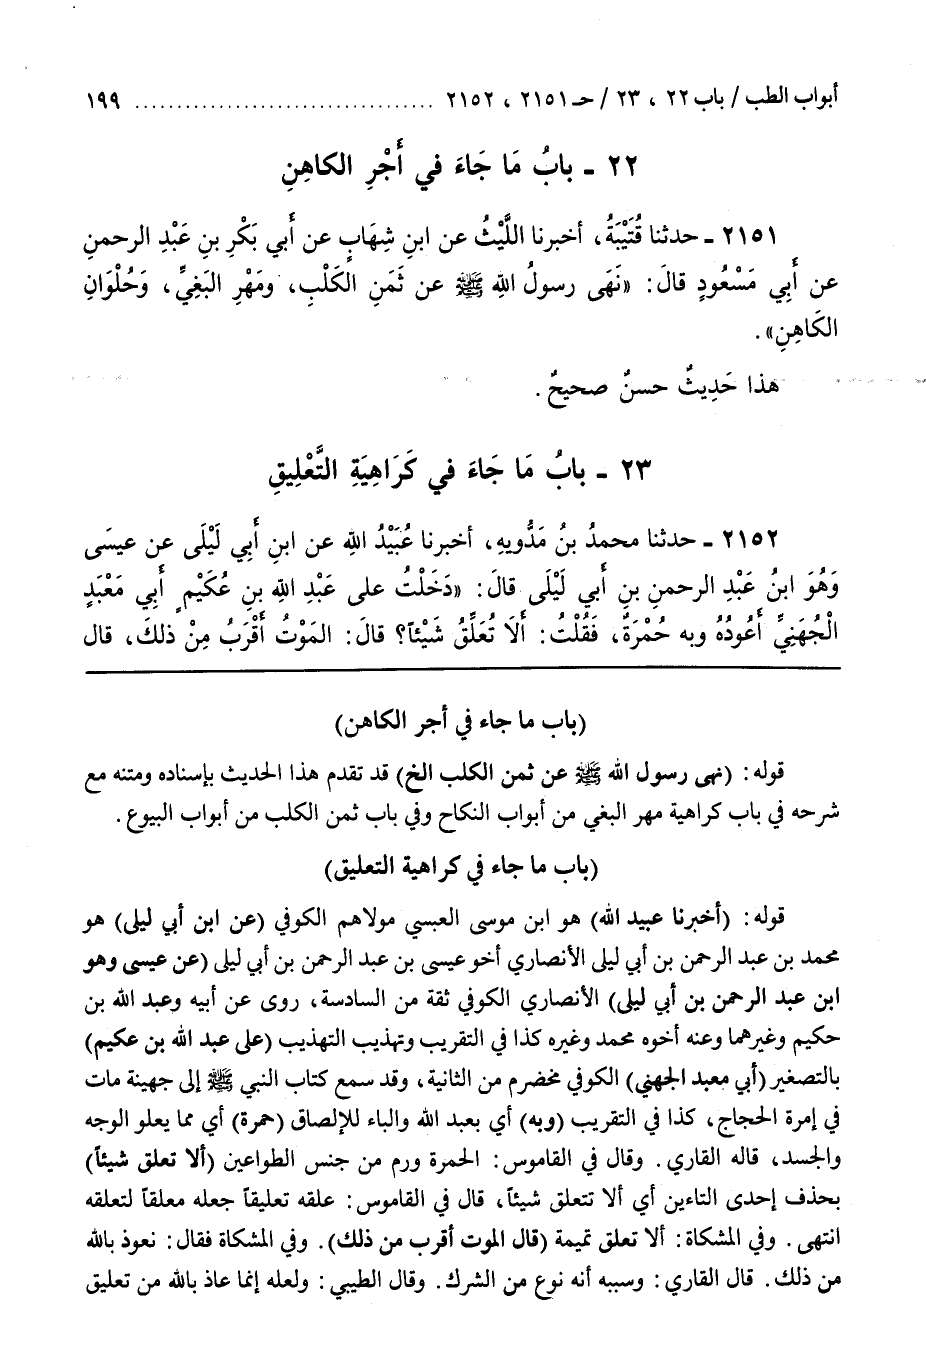 أبواب الطب / باب ٢٢ ، ٢٣ / حـ ٢١٥١ ، ٢١٥٢ .................................... ١٩٩
٢٢ ـ بابُ مَا جَاءَ في أَجْرِ الكاهِنِ
٢١٥١ ـ حدثنا قُتَيْبَةُ، أخبرنا اللَّيْثُ عن ابنِ شِهَابٍ عن أَبي بَكْرِ بنِ عَبْدِ الرحمنِ
عن أَبِي مَسْعُودٍ قالَ: «نَهَى رسولُ اللهِ ﷺ عن ثَمَنِ الكَلْبِ، ومَهْرِ البَغِيِّ، وَحُلْوَانِ
الكَاهِنِ».
هذا حَدِيثٌ حسنٌ صحيحٌ.
٢٣ ـ بابُ مَا جَاءَ في كَرَاهِيَةِ التَّعْلِيقِ
٢١٥٢ ـ حدثنا محمدُ بنُ مَدُّويهِ، أخبرنا عُبَيْدُ اللهِ عن ابنِ أَبي لَيْلَى عن عيسَى
وَهُوَ ابنُ عَبْدِ الرحمنِ بنِ أَبي لَيْلَى قالَ: «دَخَلْتُ على عَبْدِ اللهِ بنِ عُكَيْمٍ أَبي مَعْبَدٍ
الْجُهَنِيِّ أَعُودُهُ وبه حُمْرَةٌ، فَقُلْتُ: أَلَا تُعَلِّقُ شَيْئاً؟ قالَ: المَوْتُ أَقْرَبُ مِنْ ذلكَ، قال
(باب ما جاء في أجر الكاهن)
قوله: (نهى رسول الله ﷺ عن ثمن الكلب الخ) قد تقدم هذا الحديث بإسناده ومتنه مع
شرحه في باب كراهية مهر البغي من أبواب النكاح وفي باب ثمن الكلب من أبواب البيوع.
(باب ما جاء في كراهية التعليق)
قوله: (أخبرنا عبيد الله) هو ابن موسى العبسي مولاهم الكوفي (عن ابن أبي ليلى) هو
محمد بن عبد الرحمن بن أبي ليلى الأنصاري أخو عيسى بن عبد الرحمن بن أبي ليلى (عن عيسى وهو
ابن عبد الرحمن بن أبي ليلى) الأنصاري الكوفي ثقة من السادسة، روى عن أبيه وعبد الله بن
حكيم وغيرهما وعنه أخوه محمد وغيره كذا في التقريب وتهذيب التهذيب (على عبد الله بن عكيم)
بالتصغير (أبي معبد الجهني) الكوفي مخضرم من الثانية، وقد سمع كتاب النبي ﷺ إلى جهينة مات
في إمرة الحجاج، كذا في التقريب (وبه) أي بعبد الله والباء للإلصاق (حمرة) أي مما يعلو الوجه
والجسد، قاله القاري. وقال في القاموس: الحمرة ورم من جنس الطواعين (ألا تعلق شيئاً)
بحذف إحدى التاءين أي ألا تتعلق شيئاً، قال في القاموس: علقه تعليقاً جعله معلقاً لتعلقه
انتهى. وفي المشكاة: ألا تعلق تميمة (قال الموت أقرب من ذلك). وفي المشكاة فقال: نعوذ بالله
من ذلك. قال القاري: وسببه أنه نوع من الشرك. وقال الطيبي: ولعله إنما عاذ بالله من تعليق